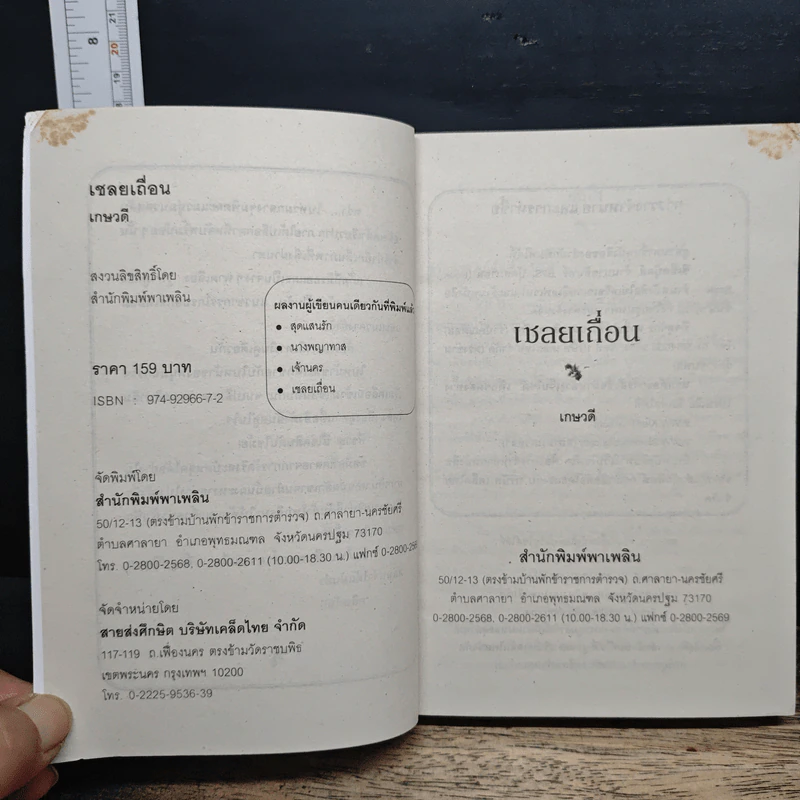 8
21
20
19
เชลยเถื่อน
เกษวดี
สงวนลิขสิทธิ์โดย
สำนักพิมพ์พาเพลิน
ราคา 159 บาท
ISBN : 974-92966-7-2
ผลงานผู้เขียนคนเดียวกันที่พิมพ์แล้ว
• สุดแสนรัก
• นางพญาทาส
• เจ้านคร
• เชลยเถื่อน
จัดพิมพ์โดย
สำนักพิมพ์พาเพลิน
50/12-13 (ตรงข้ามบ้านพักข้าราชการตำรวจ) ถ.ศาลายา-นครชัยศรี
ตำบลศาลายา อำเภอพุทธมณฑล จังหวัดนครปฐม 73170
โทร. 0-2800-2568, 0-2800-2611 (10.00-18.30 น.) แฟกซ์ 0-2800-256
จัดจำหน่ายโดย
สายส่งศึกษิต บริษัทเคล็ดไทย จำกัด
117-119 ถ.เฟื่องนคร ตรงข้ามวัดราชบพิธ
เขตพระนคร กรุงเทพฯ 10200
โทร. 0-2225-9536-39
เชลยเถื่อน
เกษวดี
สำนักพิมพ์พาเพลิน
50/12-13 (ตรงข้ามบ้านพักข้าราชการตำรวจ) ถ.ศาลายา-นครชัยศรี
ตำบลศาลายา อำเภอพุทธมณฑล จังหวัดนครปฐม 73170
0-2800-2568, 0-2800-2611 (10.00-18.30 น.) แฟกซ์ 0-2800-2569